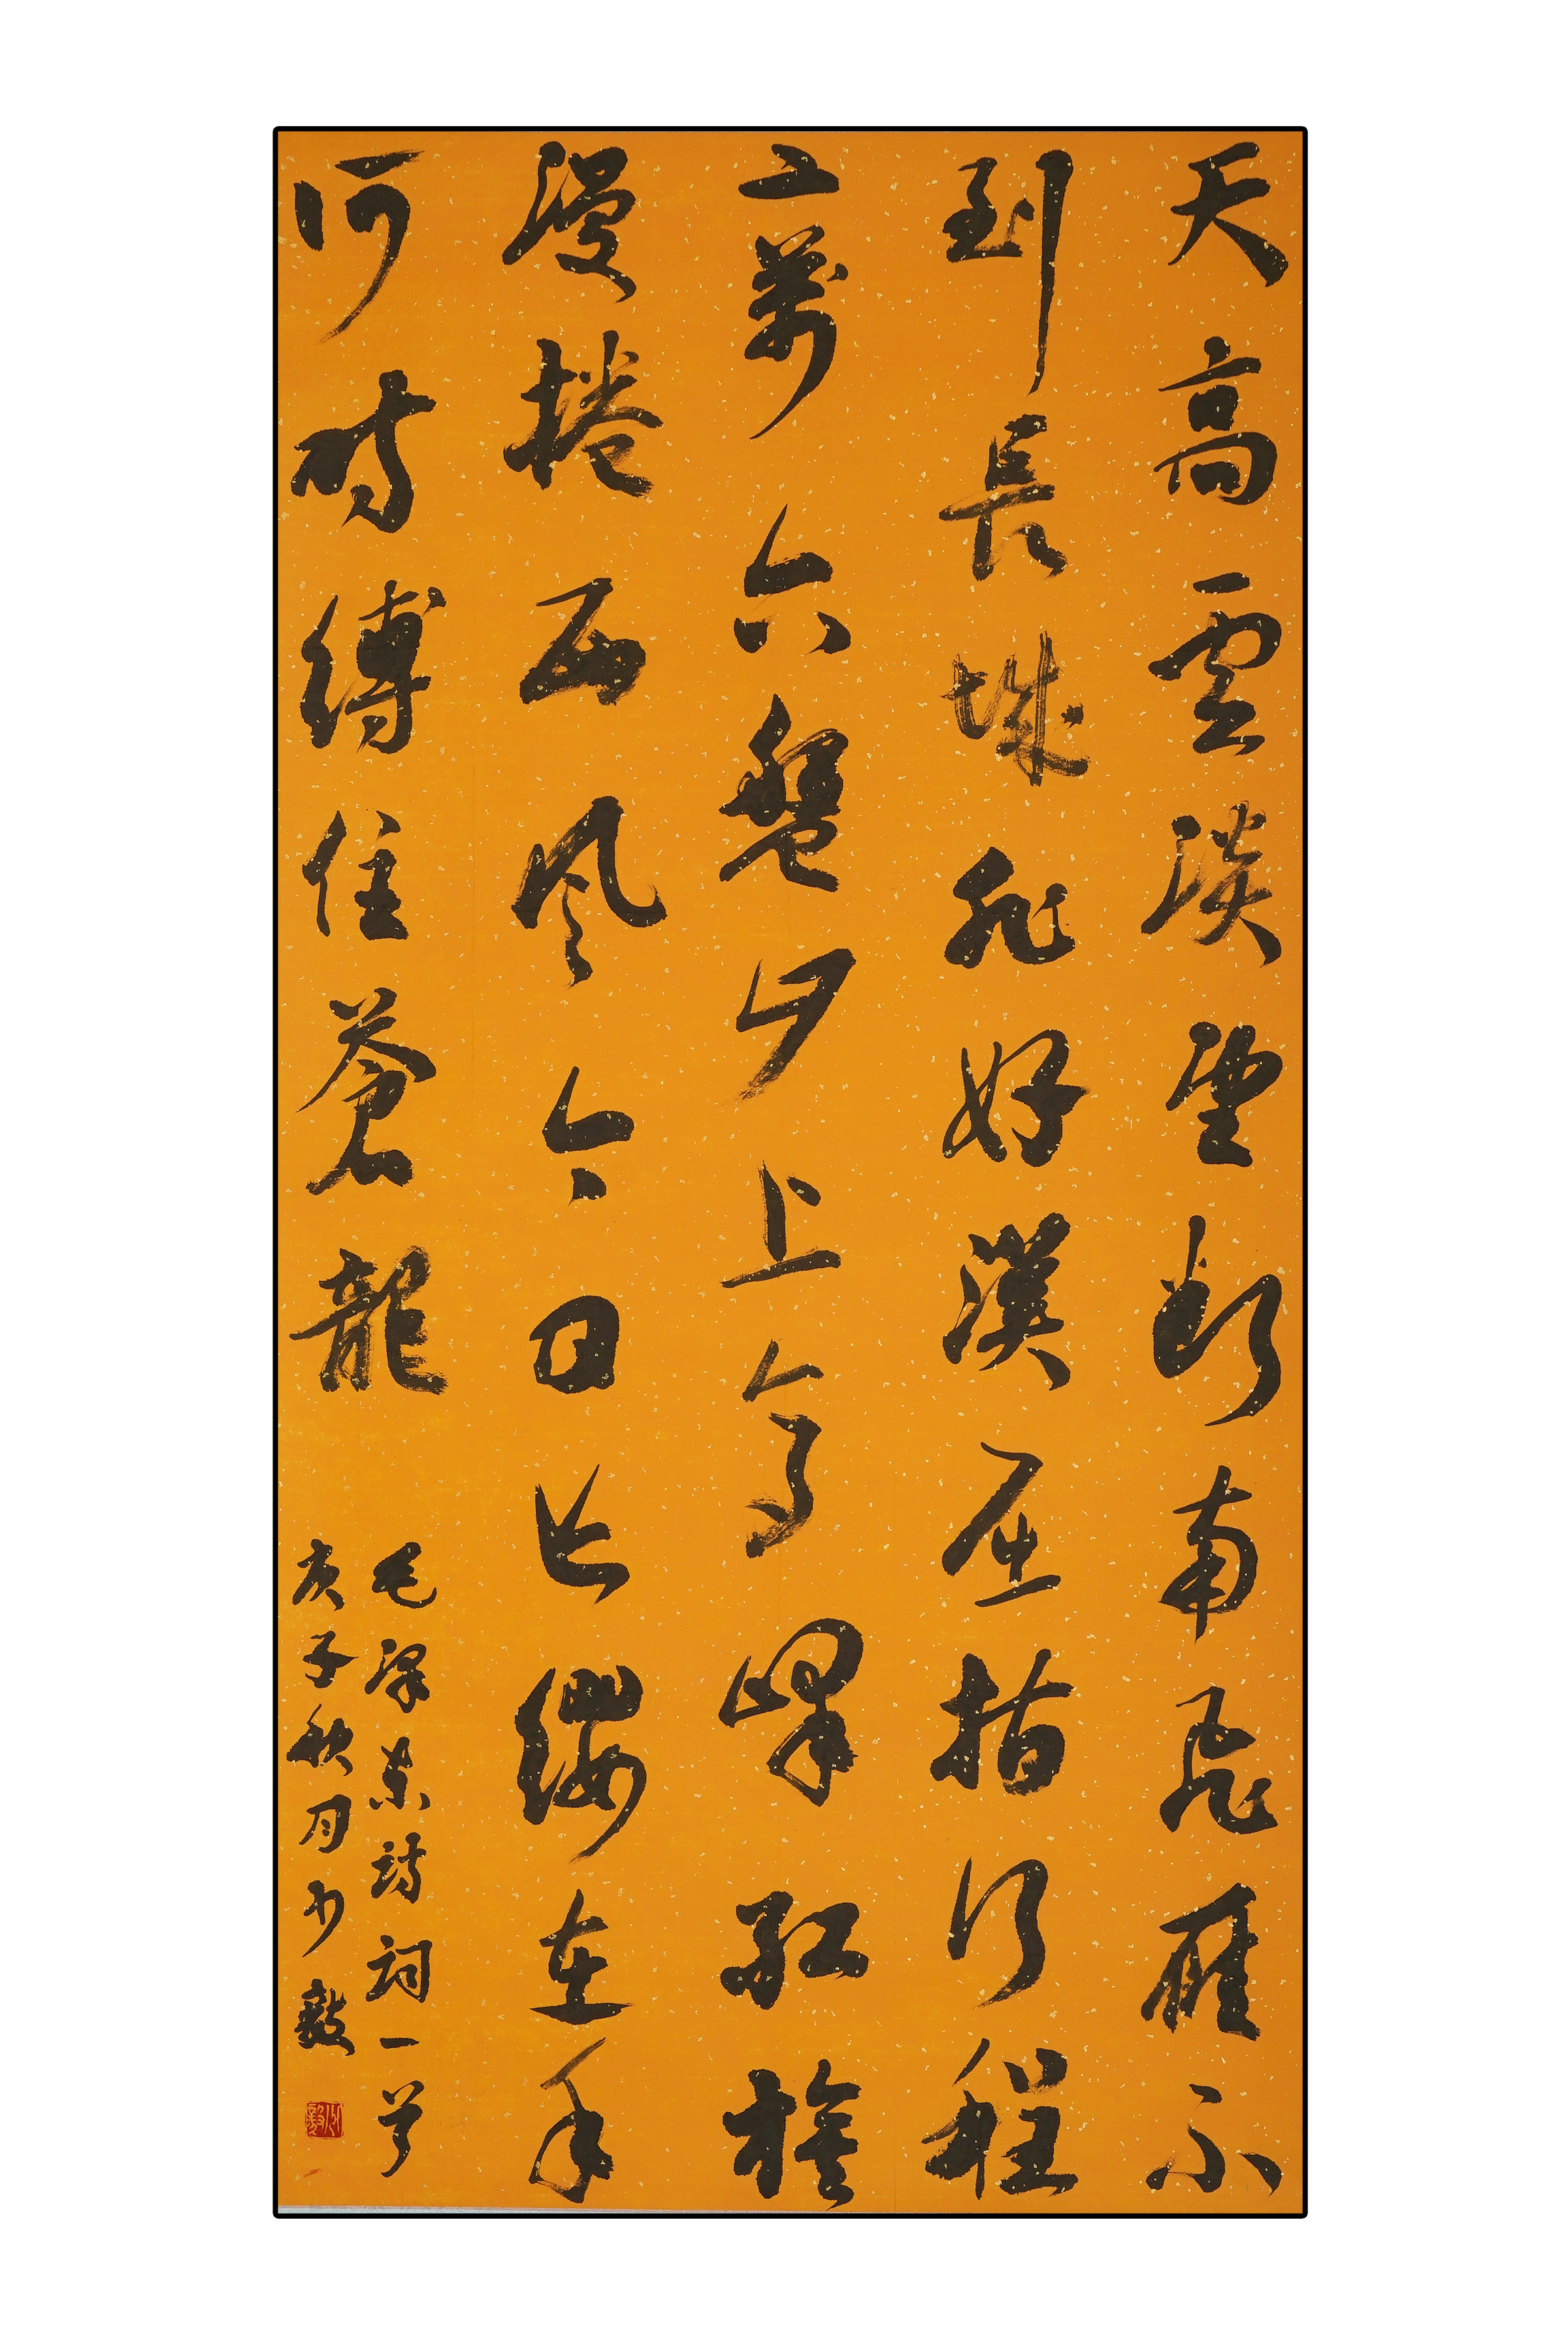 天高雲淡望斷南飛雁不
到長城非好漢屈指行程
二萬六盤山上高峰紅旗
漫捲西风今日長纓在手
何時縛住蒼龍
毛澤東詩詞一首
庚子秋月少毅
少毅